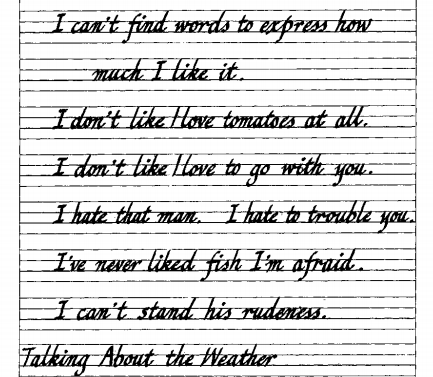 I can't find words to express how
much I like it.
I don't like/love tomatoes at all.
I don't like/love to go with you.
I hate that man. I hate to trouble you.
I've never liked fish I'm afraid.
I can't stand his rudeness.
Talking About the Weather